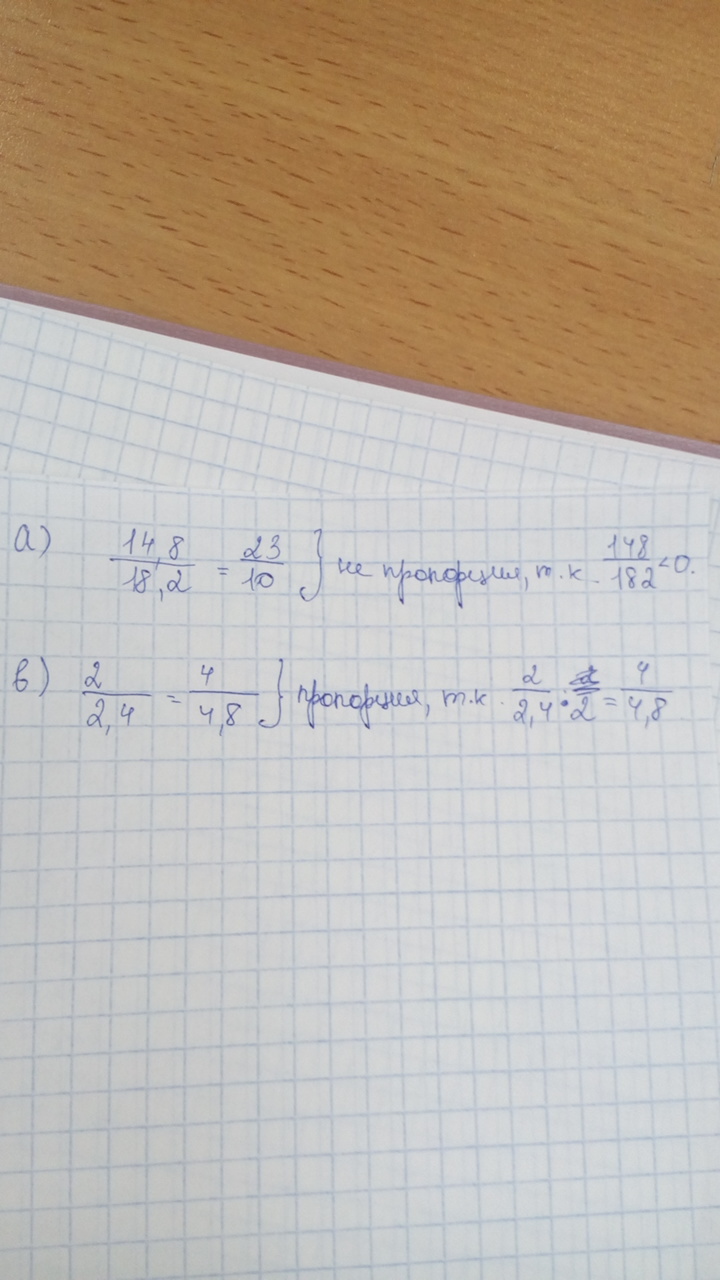 а) 14,8/18,2 = 23/10 } не пропорция, т.к. 148/182 < 0.
в) 2/2,4 = 4/4,8 } пропорция, т.к. 2/2,4 · 2/2 = 4/4,8